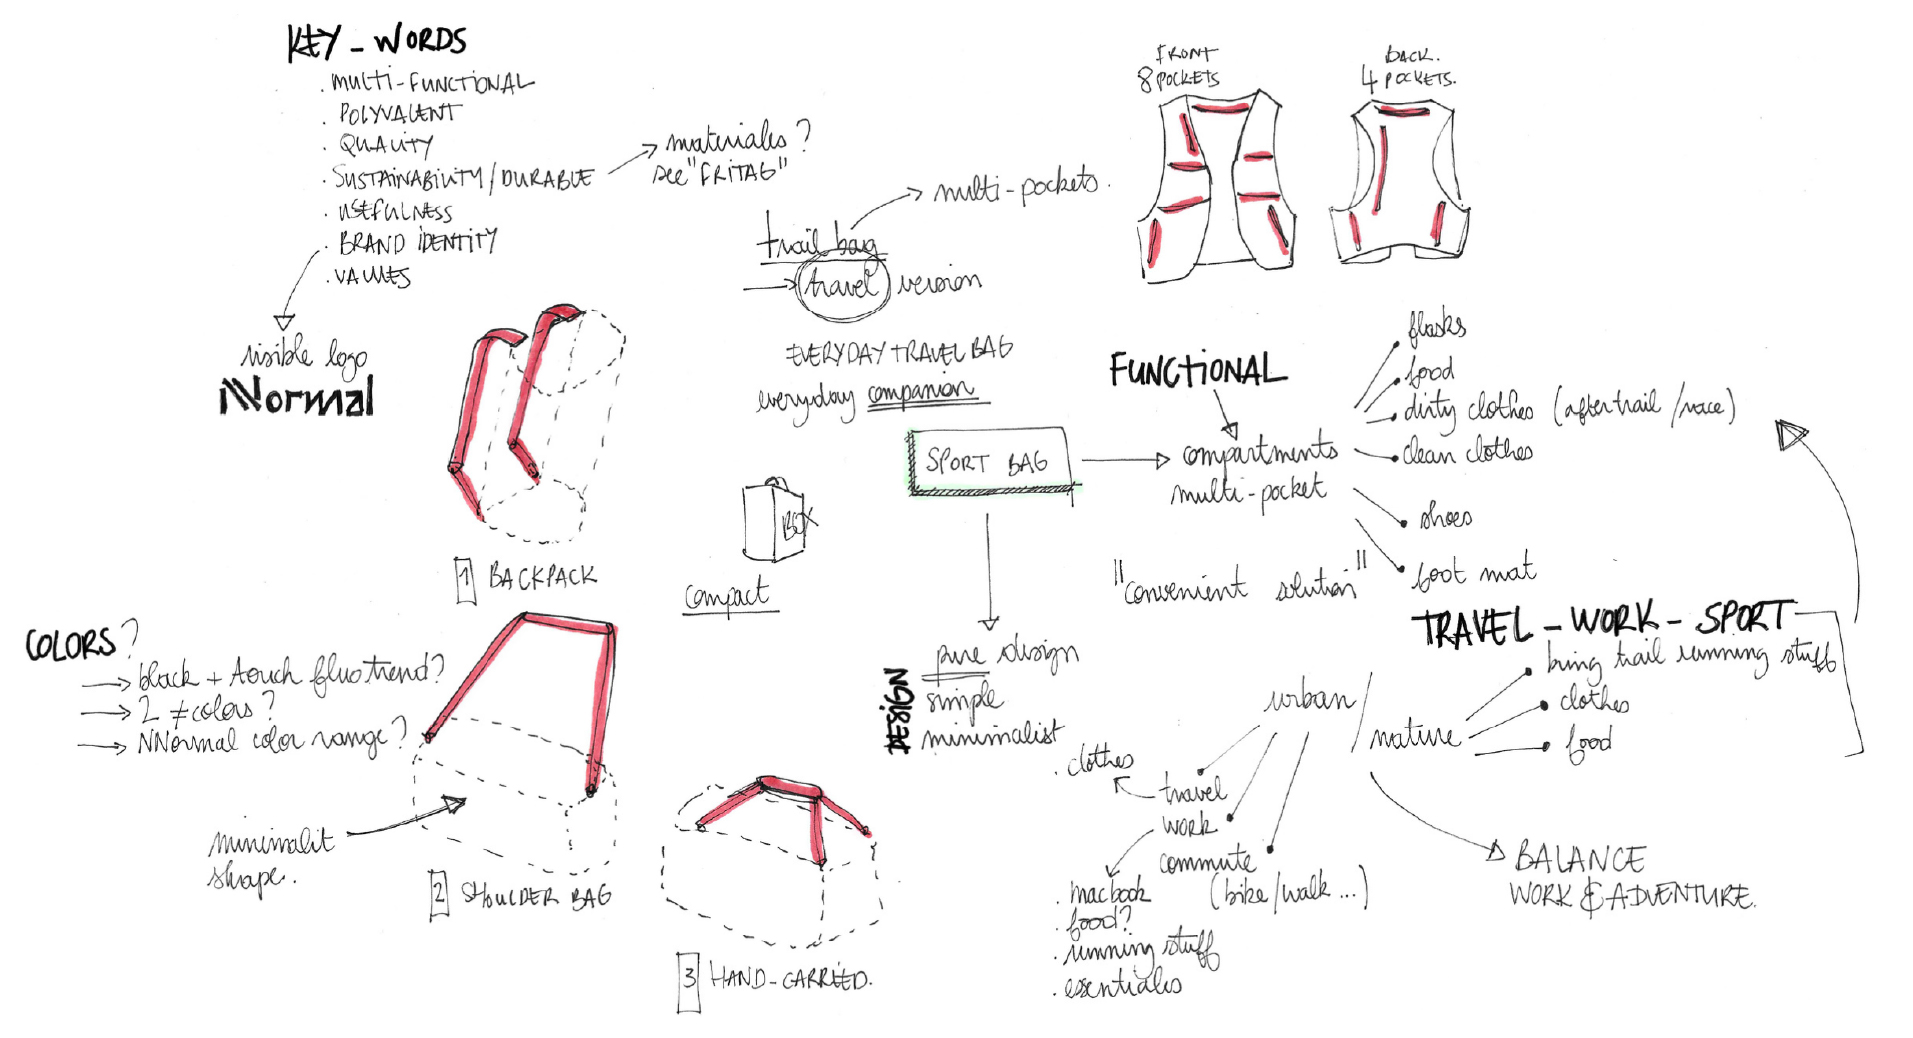 KEY-WORDS
. MULTI-FUNCTIONAL
. POLYVALENT
. QUALITY
. SUSTAINABILITY/DURABLE
. USEFULNESS
. BRAND IDENTITY
. VALUES
materiales?
see "FRITAG"
visible logo
NNormal
trail bag
travel version
multi-pockets.
EVERYDAY TRAVEL BAG
everyday companion
FRONT
8 POCKETS
BACK.
4 POCKETS.
SPORT BAG
FUNCTIONAL
compartments
multi-pocket
flasks
food
dirty clothes (after trail/race)
clean clothes
shoes
foot mat
"convenient solution"
BOX
compact
1 BACKPACK
COLORS?
black + touch fluo trend?
2 ≠ colors?
NNormal color range?
minimalit
shape.
2 SHOULDER BAG
3 HAND-CARRIED.
DESIGN
pure design
simple
minimalist
TRAVEL - WORK - SPORT
bring trail running stuff
clothes
food
urban / nature
. clothes
travel
work
commute
(bike/walk...)
. macbook
. food?
. running stuff
. essentiales
BALANCE
WORK & ADVENTURE.